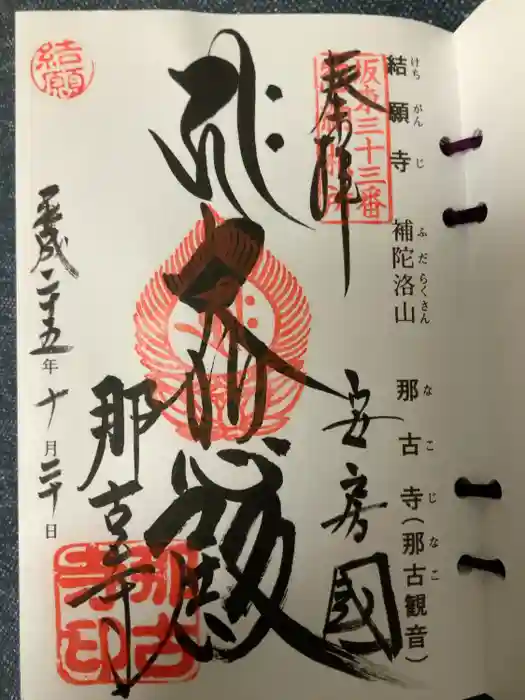 結願寺 補陀洛山 那古寺(那古観音)
けちがんじ ふだらくさん なこじ なこ
奉拝
坂東三十三番
安房國
大悲殿
那古寺
平成二十五年十月二十日
結願
那古寺印